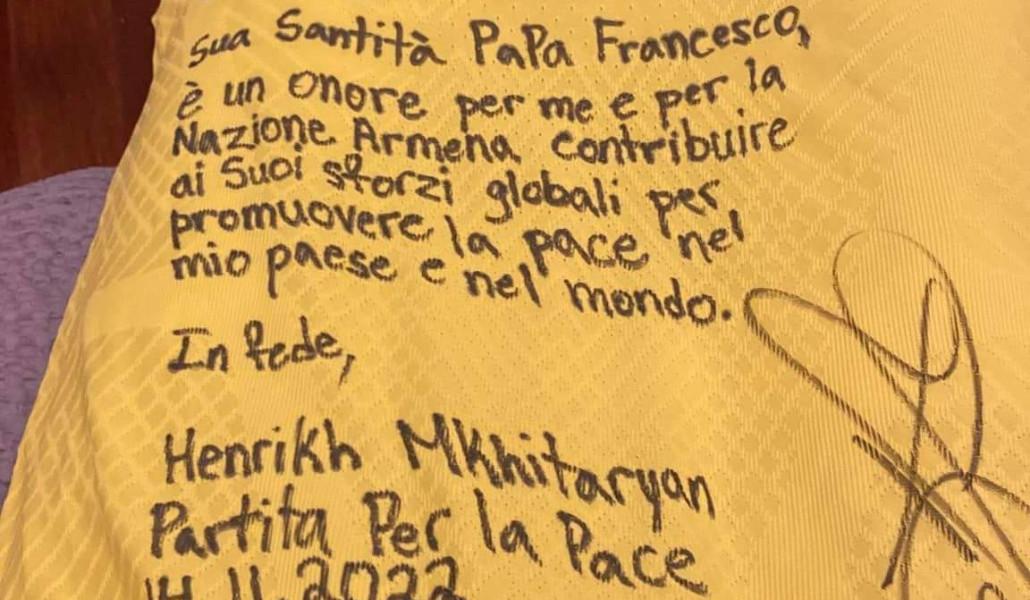 Sua Santità PaPa Francesco,
è un onore per me e per la
Nazione Armena contribuire
ai Suoi sforzi globali per
promuovere la pace nel
mio paese e nel mondo.
In fede,
Henrikh Mkhitaryan
Partita Per la Pace
14.11.2022